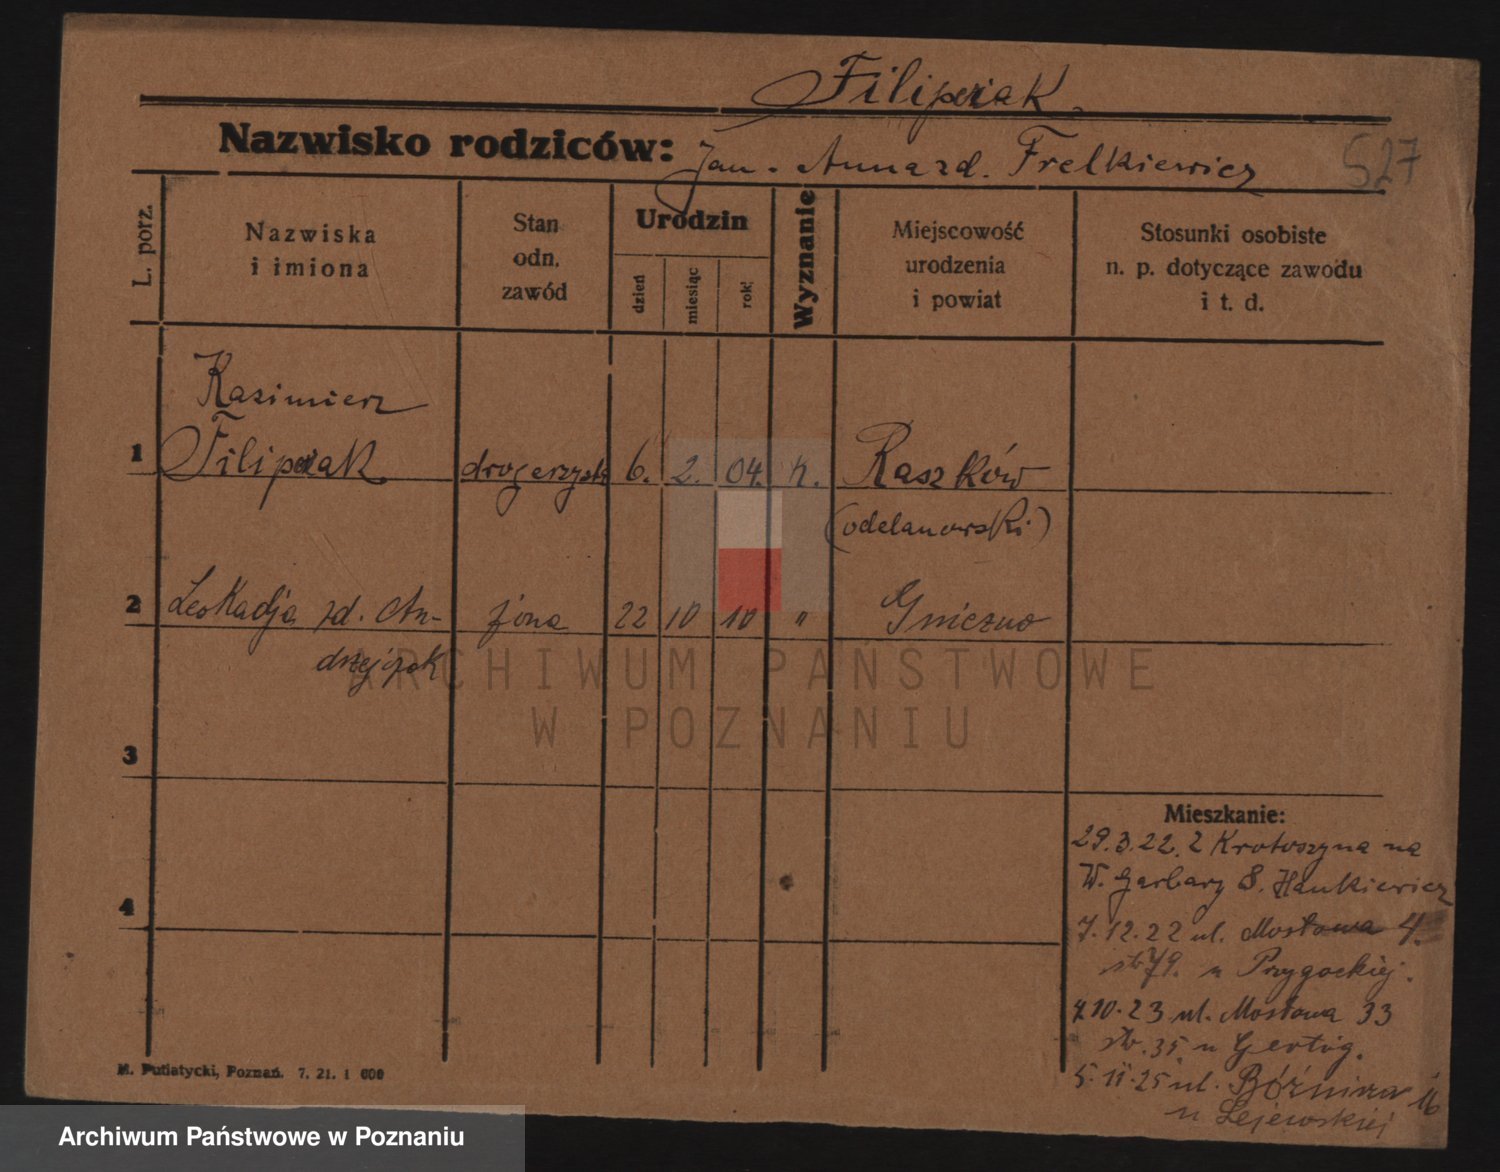 Filipiak
Nazwisko rodziców: Jan. Anna zd. Frelkiewicz
527
L. porz.
Nazwiska
i imiona
Stan
odn.
zawód
Urodzin
dzień
miesiąc
rok
Wyznanie
Miejscowość
urodzenia
i powiat
Stosunki osobiste
n. p. dotyczące zawodu
i t. d.
Kazimierz
1 Filipiak drogerzysta 6. 2. 04. k. Raszków
(odelanowski)
2 Leokadja zd. An- żona 22 10 10 " Gniezno
drzejczak
ARCHIWUM PAŃSTWOWE
W POZNANIU
3
4
Mieszkanie:
29.3.22. z Krotoszyna na
W. Garbary 8. Hankiewicz
7.12.22 ul. Mostowa 4.
u Przygockiej.
4.10.23 ul. Mostowa 33
35. u Gertig.
5.11.25 ul. Bóźnicza 16
u Lejewskiej
M. Putiatycki, Poznań. 7. 21. 1 000
Archiwum Państwowe w Poznaniu